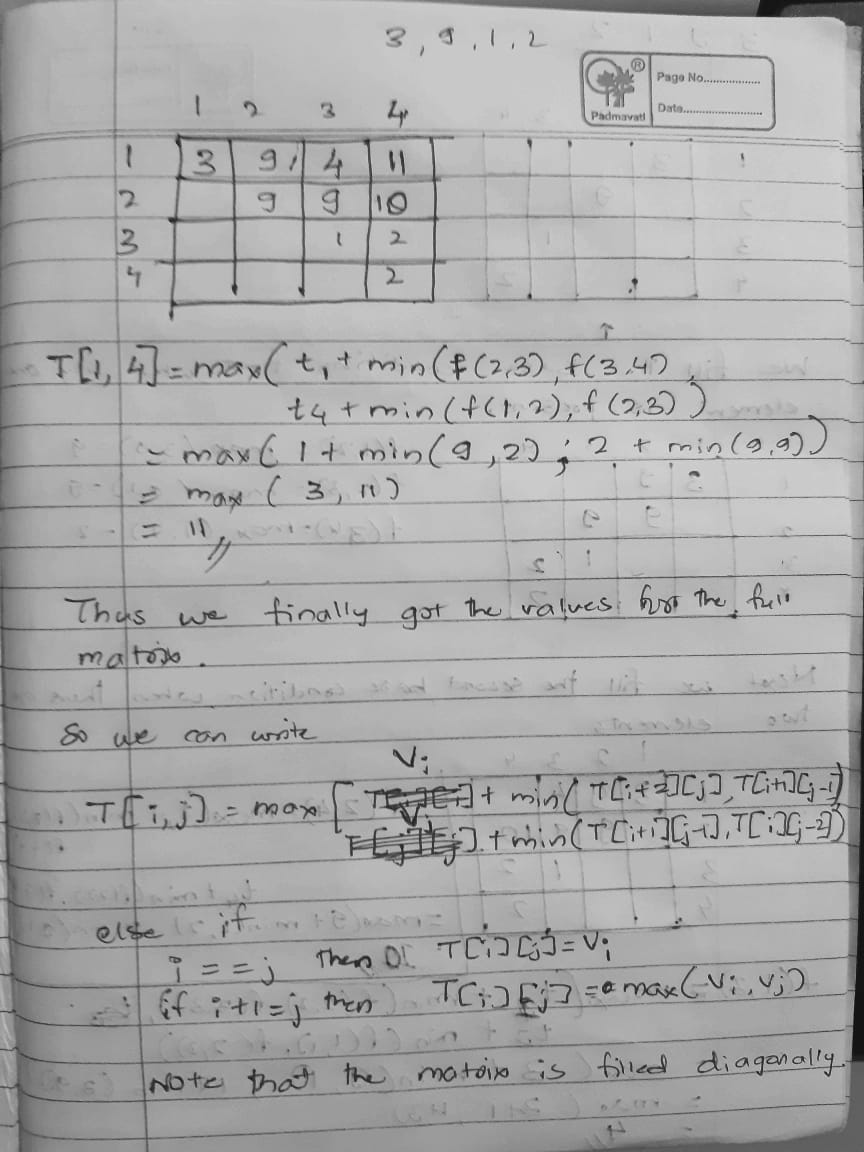 3, 9, 1, 2
Padmavati
Page No.
Date.
1 2 3 4
1 3 9 4 11
2 9 9 10
3 1 2
4 2
T[1, 4] = max( t1 + min(f(2,3), f(3,4),
t4 + min(f(1,2), f(2,3))
= max( 1 + min(9, 2) ; 2 + min(9,9))
= max ( 3, 11)
= 11
Thus we finally got the values for the full
matrix.
So we can write
Vi
T[i,j] = max[ + min( T[i+2][j], T[i+1][j-1]
Vj
+ min(T[i+1][j-1], T[i][j-2])
else if
i == j then T[i][j] = Vi
if i+1=j then T[i][j] = max(Vi, Vj)
Note that the matrix is filled diagonally.